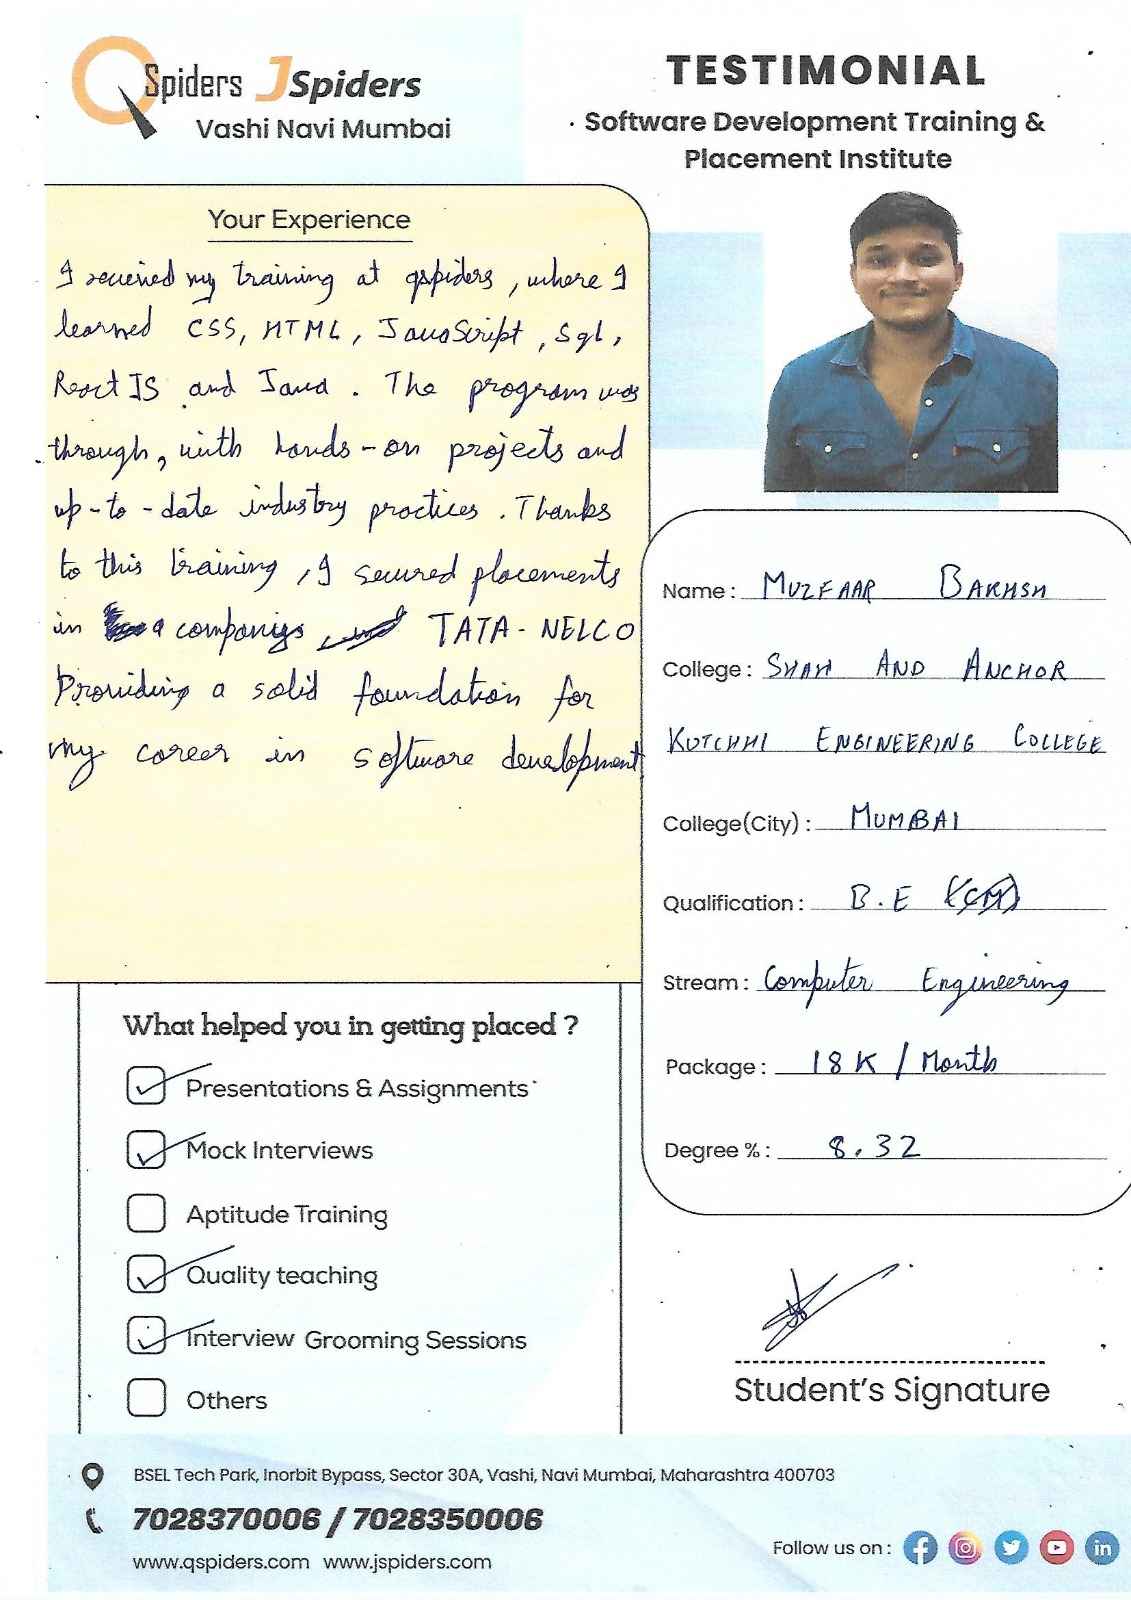 QSpiders JSpiders
Vashi Navi Mumbai
TESTIMONIAL
Software Development Training &
Placement Institute
Your Experience
I received my training at qspiders, where I
learned CSS, HTML, JavaScript, Sql,
React JS and Java. The program was
through, with hands-on projects and
up-to-date industry practices. Thanks
to this training, I secured placements
in a companies TATA-NELCO
Providing a solid foundation for
my career in software development
Name: MUZFAAR BAKHSH
College: SHAH AND ANCHOR
KUTCHHI ENGINEERING COLLEGE
College(City): MUMBAI
Qualification: B.E (CM)
Stream: Computer Engineering
Package: 18K / Month
Degree %: 8.32
What helped you in getting placed?
Presentations & Assignments
Mock Interviews
Aptitude Training
Quality teaching
Interview Grooming Sessions
Others
Student's Signature
BSEL Tech Park, Inorbit Bypass, Sector 30A, Vashi, Navi Mumbai, Maharashtra 400703
7028370006 / 7028350006
www.qspiders.com www.jspiders.com
Follow us on: